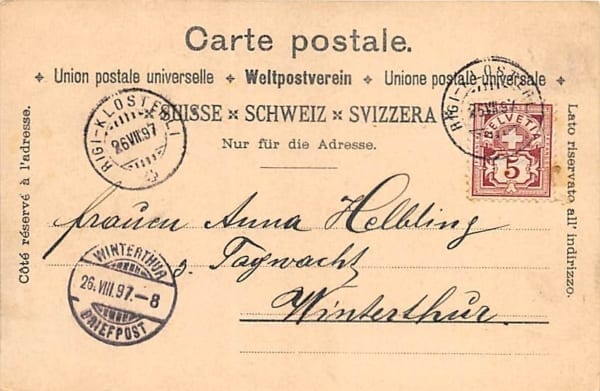 Carte postale.
Union postale universelle ✦ Weltpostverein ✦ Unione postale universale
SUISSE × SCHWEIZ × SVIZZERA
Nur für die Adresse.
Côté réservé à l'adresse.
Lato riservato all' indirizzo.
RIGI-KLÖSTERLI
26 VII 97
RIGI-KLÖSTERLI
26 VII 97
HELVETIA
5
frauen Anna Helbling
z. Tagwacht
Winterthur.
WINTERTHUR
26. VIII. 97. – 8
BRIEFPOST